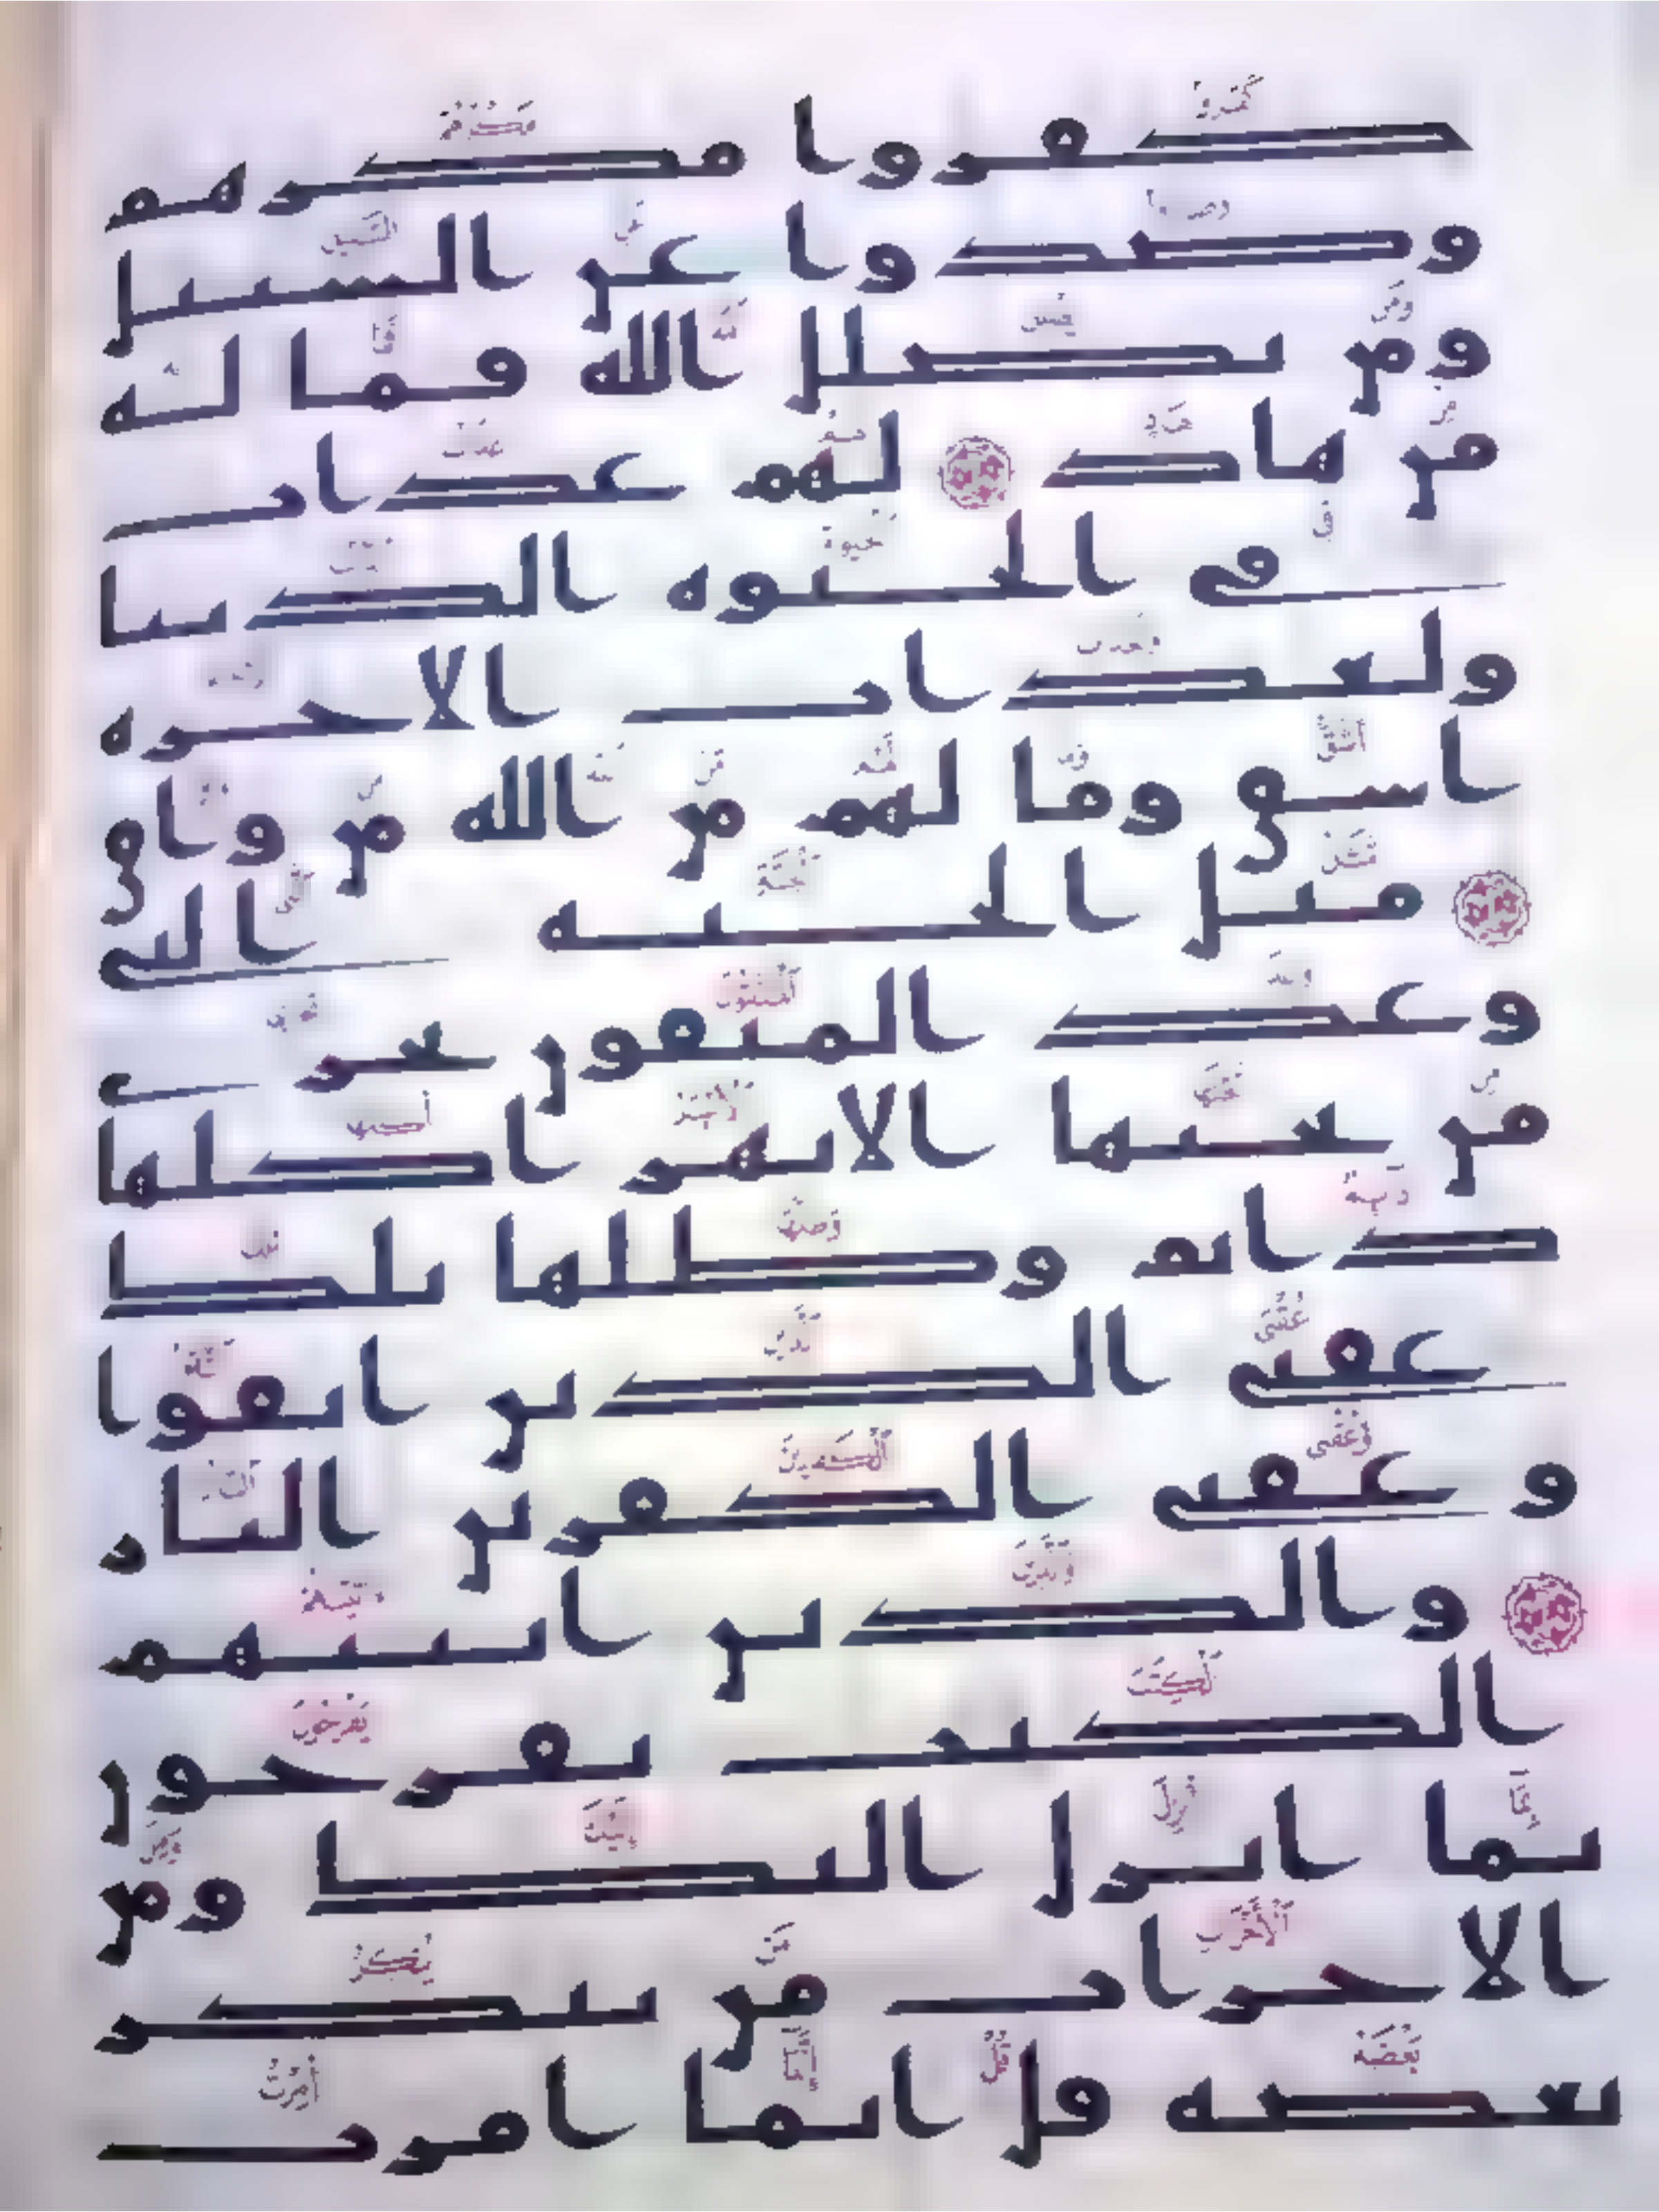 كفروا مكرهم
وصدوا عن السبيل
ومن يضلل الله فما له
من هاد لهم عذاب
في الحيوه الدنيا
ولعذاب الاخره
اشق وما لهم من الله من واق
مثل الجنه التي
وعد المتقون تجري
من تحتها الانهر اكلها
دائم وظلها تلك
عقبى الذين اتقوا
وعقبى الكفرين النار
والذين اتينهم
الكتب يفرحون
بما انزل اليك ومن
الاحزاب من ينكر
بعضه قل انما امرت